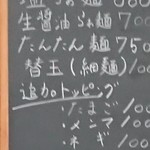 生醤油らぁ麺 700
たんたん麺 750
替玉(細麺) 100
追加トッピング
・たまご 100
・メンマ 100
・ネギ 100